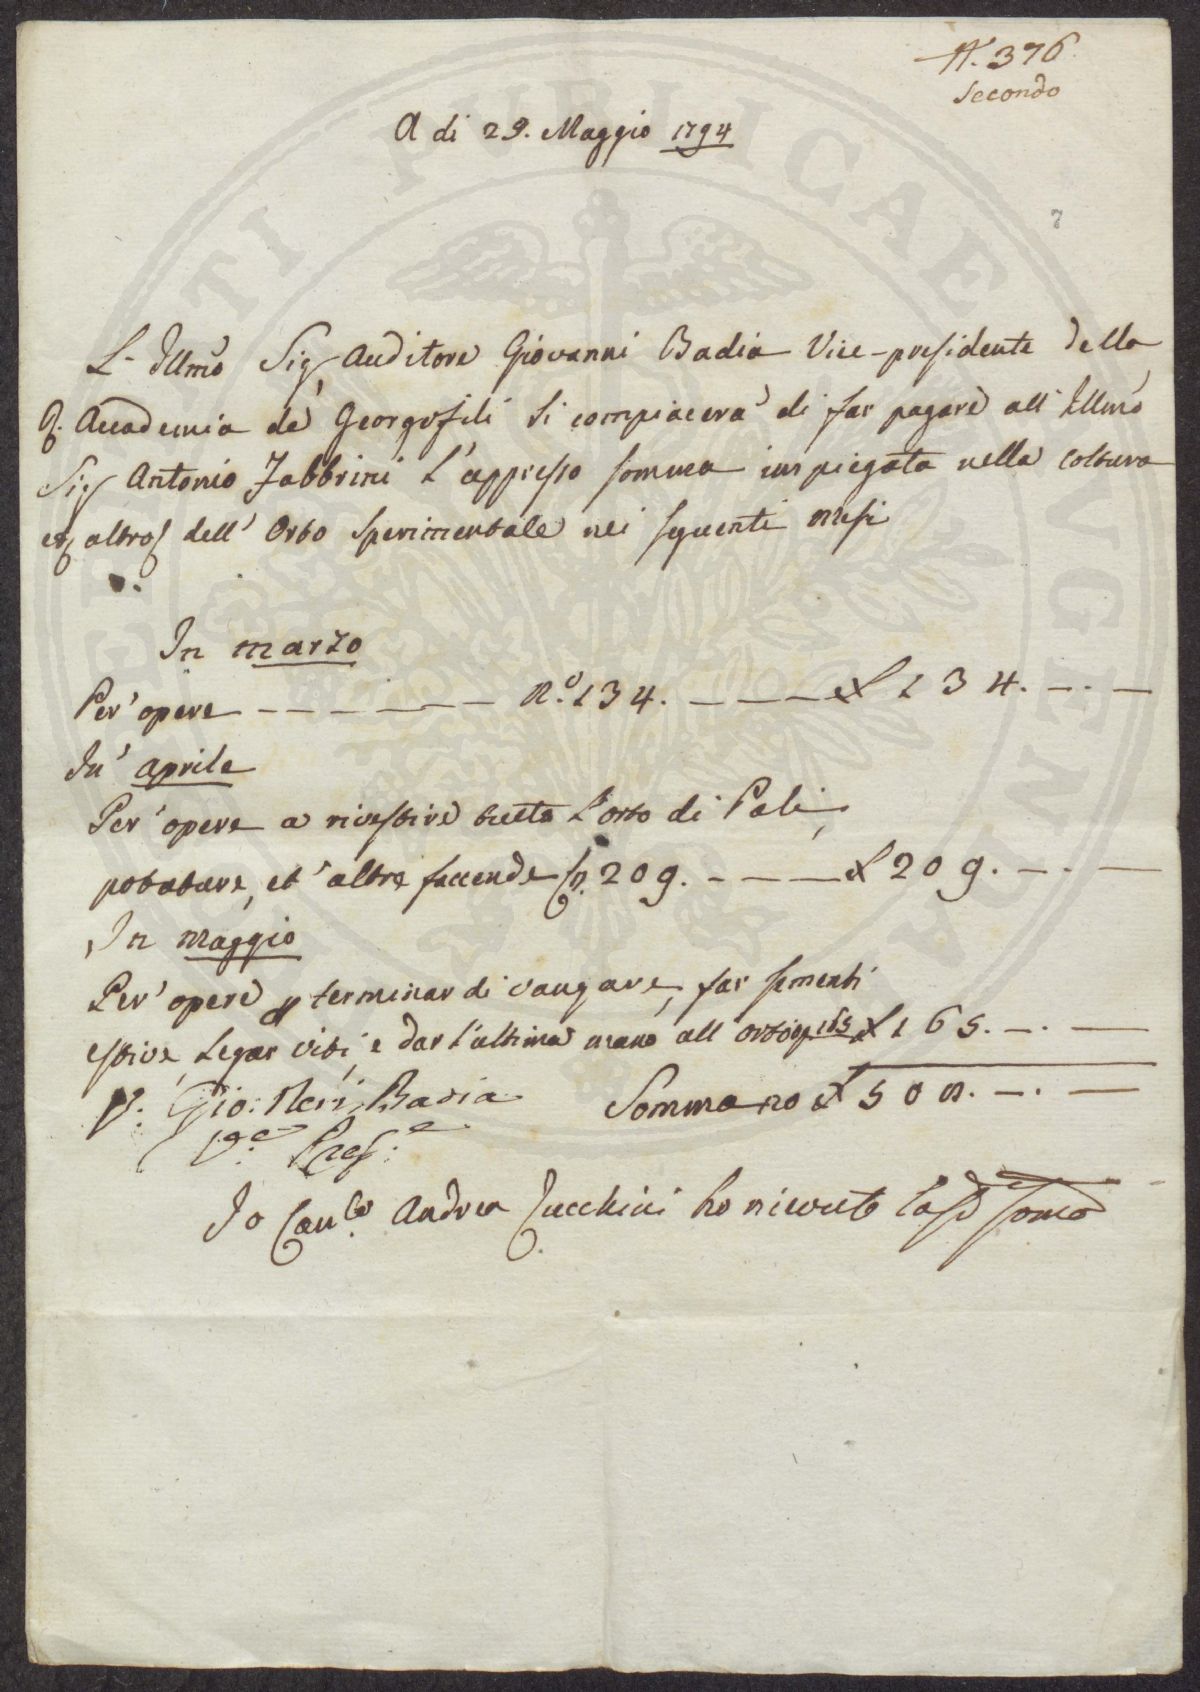 N. 376
Secondo
A di 29. Maggio 1794
7
L' Illmo Sig Auditore Giovanni Badia Vice-presidente della
R. Accademia de Georgofili Si compiacera' di far pagare all' Illmo
Sig Antonio Fabbrini L'appresso somma impiegata nella coltura
et altro dell' Orto Sperimentale nei seguenti mesi
In marzo
Per opere N.o 134. £ 134. -.-
In aprile
Per opere a rivestire tutto L'orto di Pali,
potature, et altre faccende 209. £ 209. -.-
In Maggio
Per opere p terminar di vangare, far sementi
estive, Legar viti, e dar l'ultima mano all orto 165 £ 165. -.-
V. Gio: Neri Badia Sommano £ 508. -.-
V.e Pres.e
Io Can.co Andrea Zucchini ho ricevuto la sd somma
PUBLICAE